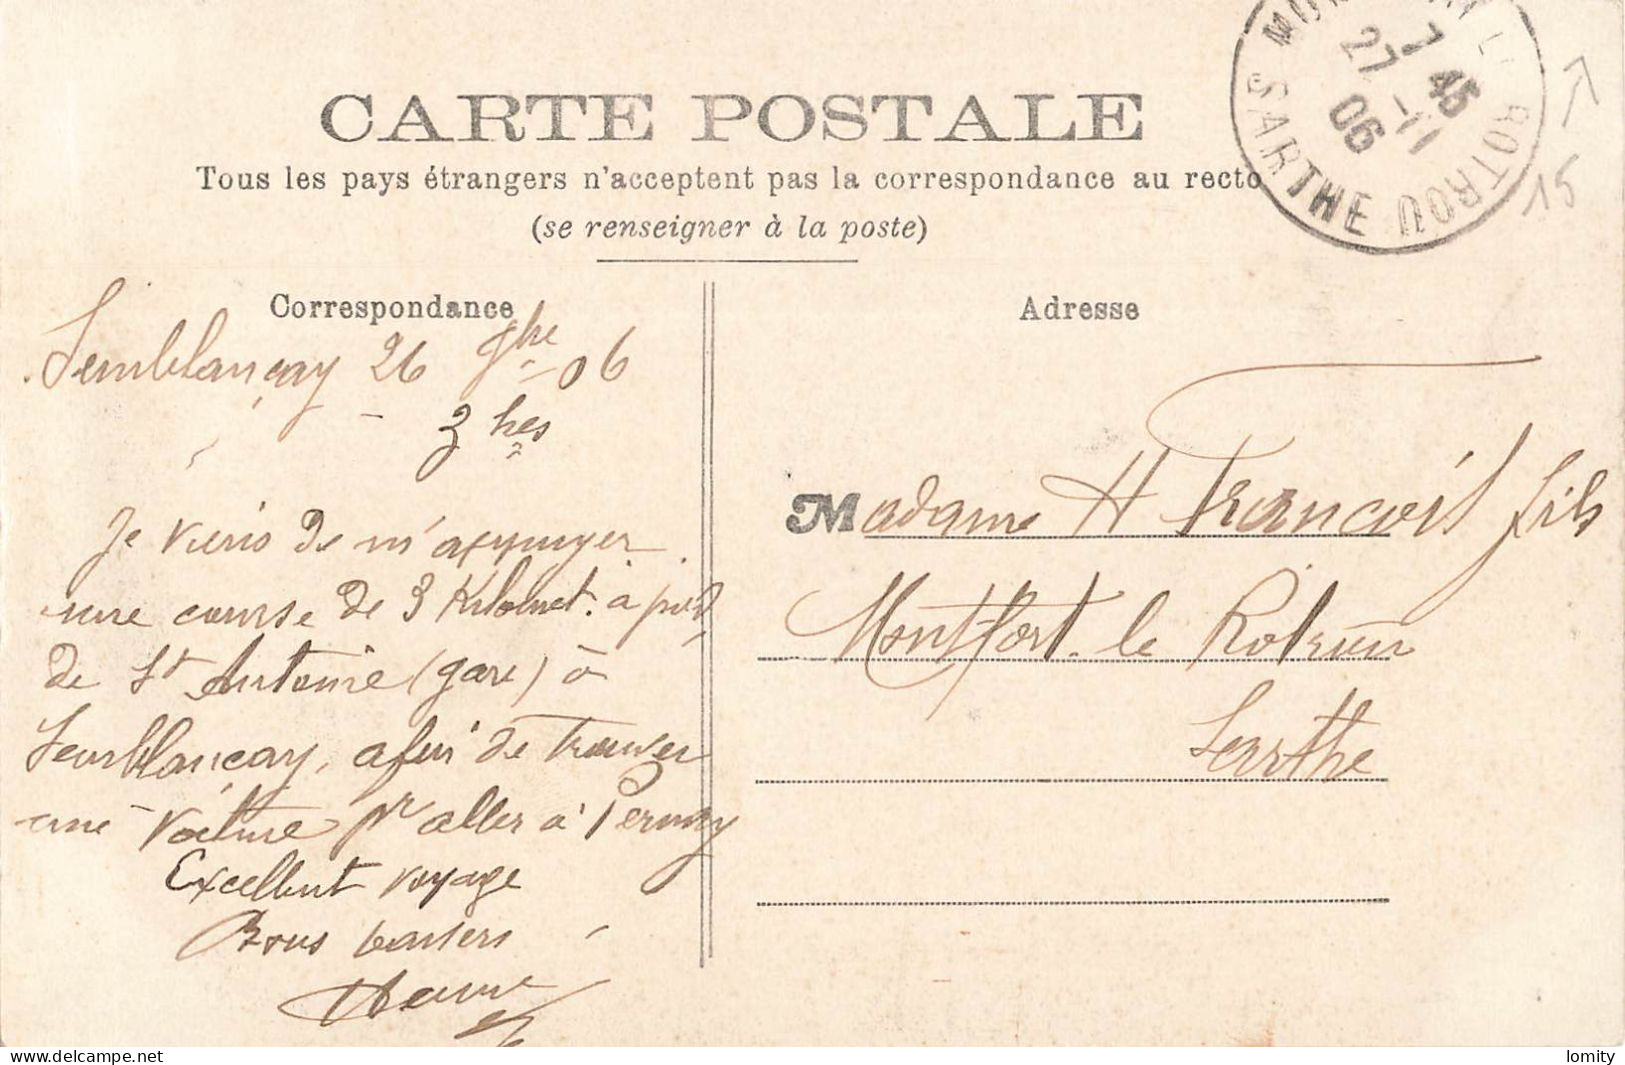 CARTE POSTALE
Tous les pays étrangers n'acceptent pas la correspondance au recto
(se renseigner à la poste)
SARTHE ROTROU
7 45
27 -11
06
15
Correspondance
Semblançay 26 9bre 06
3 hes
Je viens de m'appuyer
une course de 3 Kilomet. à pied
de St Antoine (gare) à
Semblançay, afin de trouver
une voiture pr aller à Pernay
Excellent voyage
Bons baisers
Adresse
Madame H François fils
Montfort le Rotrou
Sarthe
lomity
delcampe.net